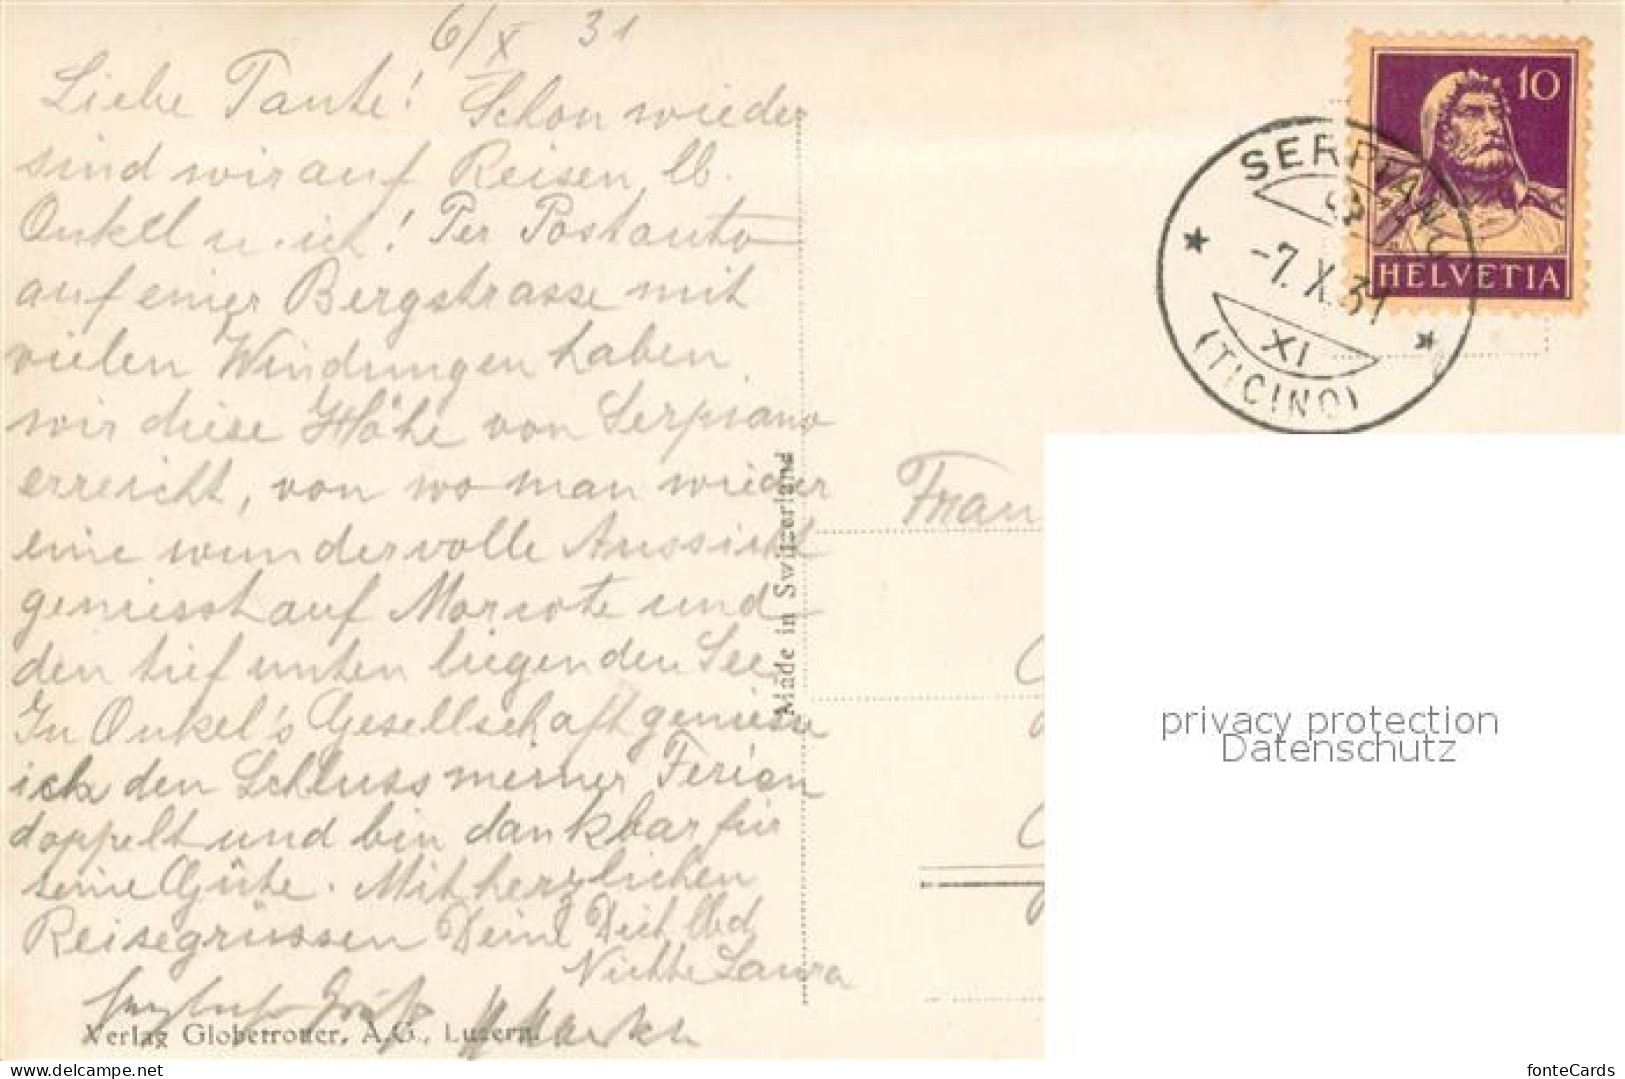 6/X 31
Liebe Tante! Schon wieder
sind wir auf Reisen, lb.
Onkel u. ich! Per Postauto
auf einer Bergstrasse mit
vielen Windungen haben
wir diese Höhe von Serpiano
erreicht, von wo man wieder
eine wundervolle Aussicht
geniesst auf Morcote und
den tief unten liegenden See.
In Onkel's Gesellschaft geniesse
ich den Schluss meiner Ferien
doppelt und bin dankbar für
seine Güte. Mit herzlichen
Reisegrüssen Deine Dich lbd
Nichte Laura
Verlag Globetrotter, A.G., Luzern.
Made in Switzerland
10
HELVETIA
SERPIANO
-7.X.31
XI
(TICINO)
Frau
privacy protection
Datenschutz
fonteCards